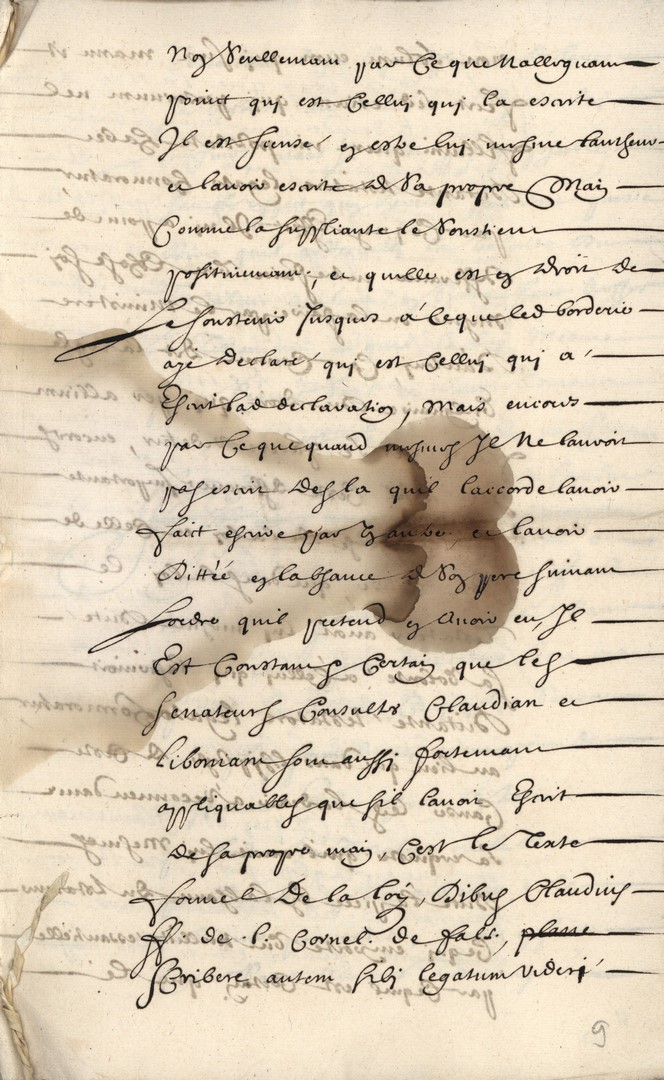 Non Seullemant par Ce que Nallegnant
point qui est Celluy qui la escrite
Il est sensé en estre luy mesme lautheur
et lavoir escrite de Sa propre Main
Comme la suppliante le Soustient
positivemant, et quelle est en droit de
le soustenir Jusques a Ce que led borderie
aye declaré qui est Celluy qui a
Escrit lad declaration, Mais encores
par Ce que quand mesmes Il Ne lauroit
pas escrit des la quil laccorde lavoir
faict escrire par et lavoir
Dittée en labsance de Son pere suivant
lordre quil pretend en Avoir eu, Il
Est Constant et Certain que les
senateurs Consults Claudian et
libonian sont aussy fortemant
appliquables que sil lavoit Escrit
de sa propre main, C'est le Texte
formel De la loy, Dibus Claudius
ff. de l. Cornel. de fals,
Scribere autem sibi legatum videri
9